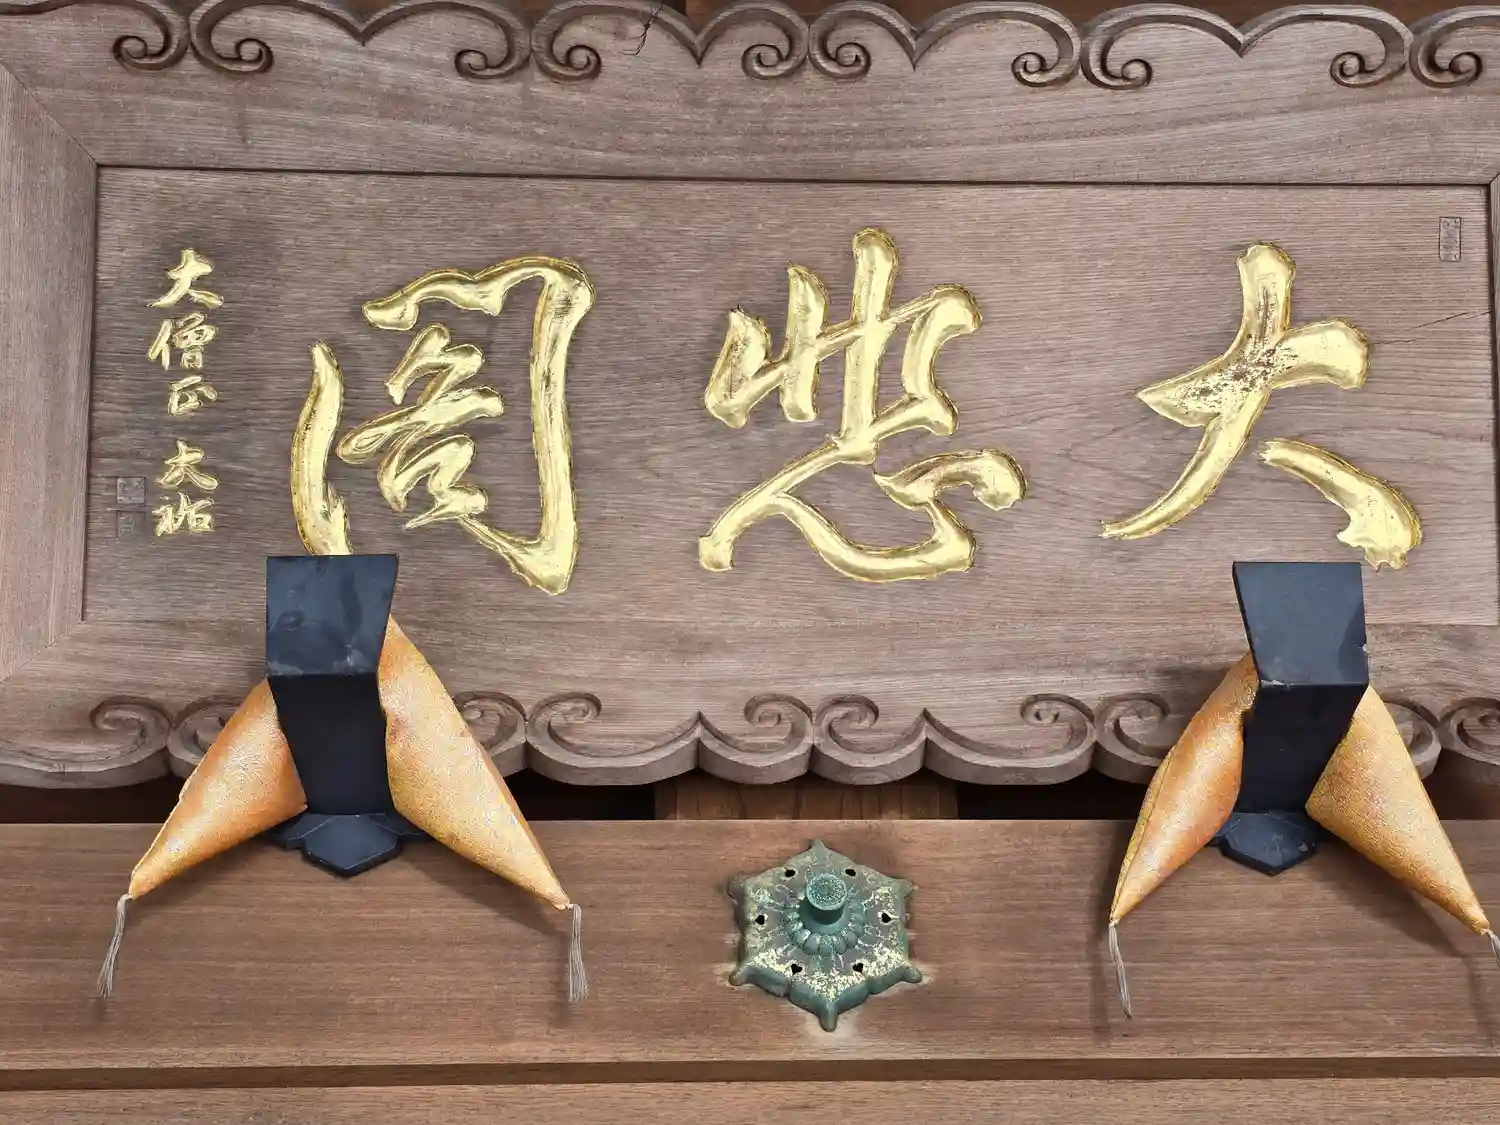 大悲閣
大僧正 大祐